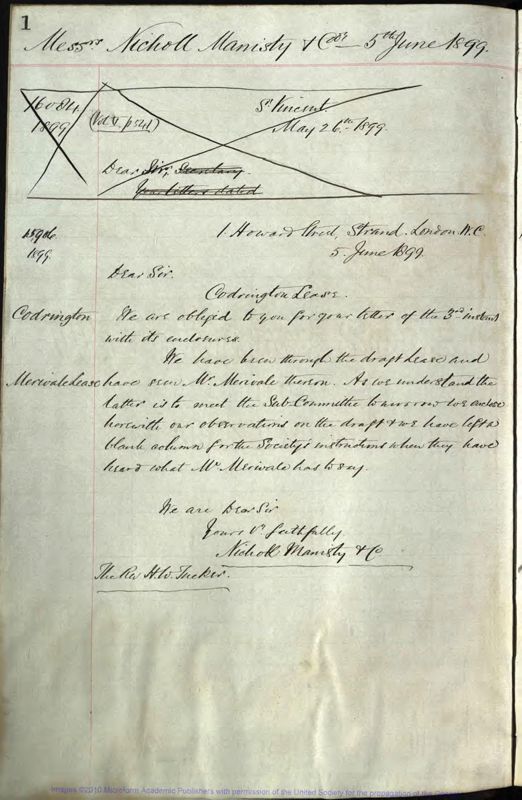 1
Messrs Nicholl Manisty & Co's — 5th June 1899.
16084
1899
(Vol V. p 541)
St Vincent
May 26th 1899.
Dear Sir, Secretary.
Your letters dated
1899
1 Howard Street, Strand. London W.C.
5 June 1899
Dear Sir.
Codrington Lease.
Codrington
We are obliged to you for your letter of the 3rd instant
with its enclosures.
We have been through the draft Lease and
Merivale Lease
have seen Mr Merivale thereon. As we understand the
latter is to meet the Sub-Committee tomorrow we enclose
herewith our observations on the draft & we have left a
blank column for the Society's instructions when they have
heard what Mr Merivale has to say.
We are Dear Sir
Yours Vy faithfully
Nicholl Manisty & Co
The Rev H. W. Tucker.
Images ©2010 Microform Academic Publishers with permission of the United Society for the propagation of the